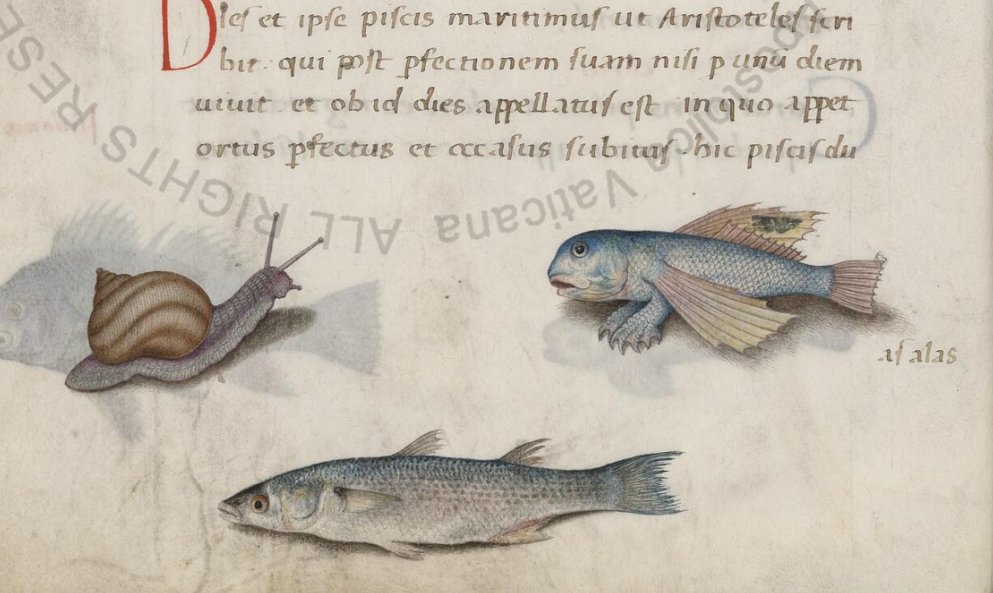 Dies et ipse piscis maritimus ut Aristoteles scri
bit. qui post ꝑfectionem suam nisi ꝑ unū diem
uiuit et ob id dies appellatus est in quo appet
ortus ꝑfectus et occasus subitus. hic piscis du
as alas
postolica Vaticana ALL RIGHTS RESE